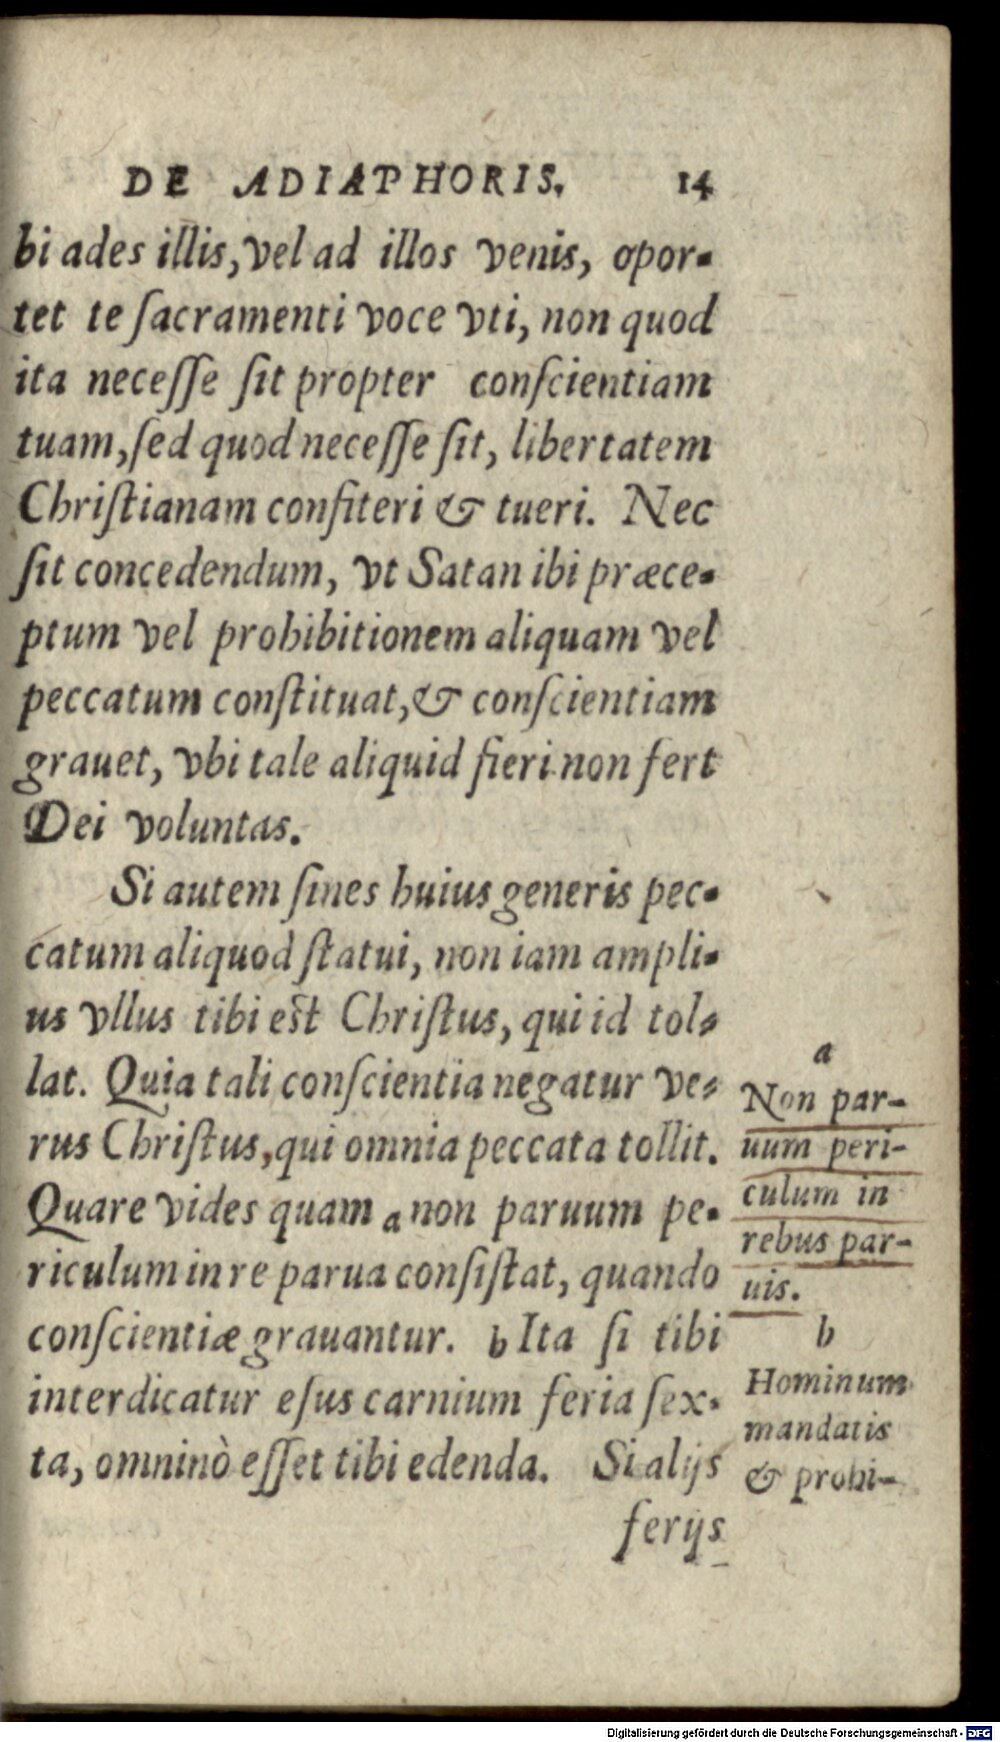 DE ADIAPHORIS. 14
bi ades illis, vel ad illos venis, opor-
tet te ſacramenti voce vti, non quod
ita neceſſe ſit propter conſcientiam
tuam, ſed quod neceſſe ſit, libertatem
Chriſtianam confiteri & tueri. Nec
ſit concedendum, vt Satan ibi præce-
ptum vel prohibitionem aliquam vel
peccatum conſtituat, & conſcientiam
grauet, vbi tale aliquid fieri non fert
Dei voluntas.
Si autem ſines huius generis pec-
catum aliquod ſtatui, non iam ampli-
us vllus tibi est Chriſtus, qui id tol-
lat. Quia tali conſcientia negatur ve-
rus Chriſtus, qui omnia peccata tollit.
Quare vides quam a non paruum pe-
riculum in re parua conſiſtat, quando
conſcientiæ grauantur. b Ita ſi tibi
interdicatur eſus carnium feria ſex-
ta, omninò eſſet tibi edenda. Si alijs
ferijs
a
Non par-
uum peri-
culum in
rebus par-
uis.
b
Hominum
mandatis
& prohi-
Digitalisierung gefördert durch die Deutsche Forschungsgemeinschaft - DFG